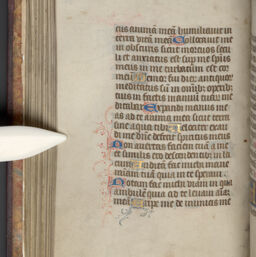 cus animā meā humiliavit in
terra vitā meā Collocavit me
in obscuris sicut mortuos secu
li et anxiatus est sup me spūs
meus in me turbatum est cor
meū Memor fui dierū antiquor
meditatus sū in omībȝ operibȝ
tuis in factis manuū tuarū me
ditabar Expandi manus me
as ad te anima mea sicut terra
sine aqua tibi Velociter exau
di me dne defecit spiritus meus
Non avertas faciem tuā a me
et similis ero descendentibȝ in la
cum Auditā fac michi mane
miam tuā quia in te speravi
Notam fac michi viam in qua
ambulē quia ad te levavi aīaȝ
meā Eripe me de inimicis me